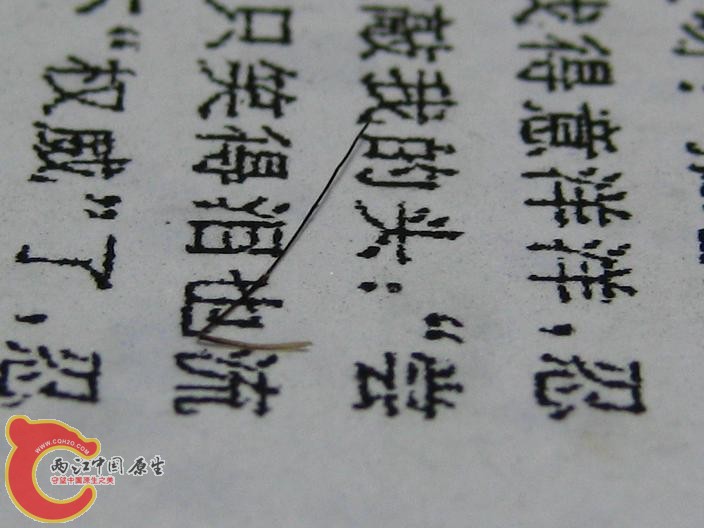 得意洋洋，忍
敲我的头：“尝
只笑得泪也流
“权威”了，忍
WWW.CQH2O.COM
两江中国原生
守望中国原生之美